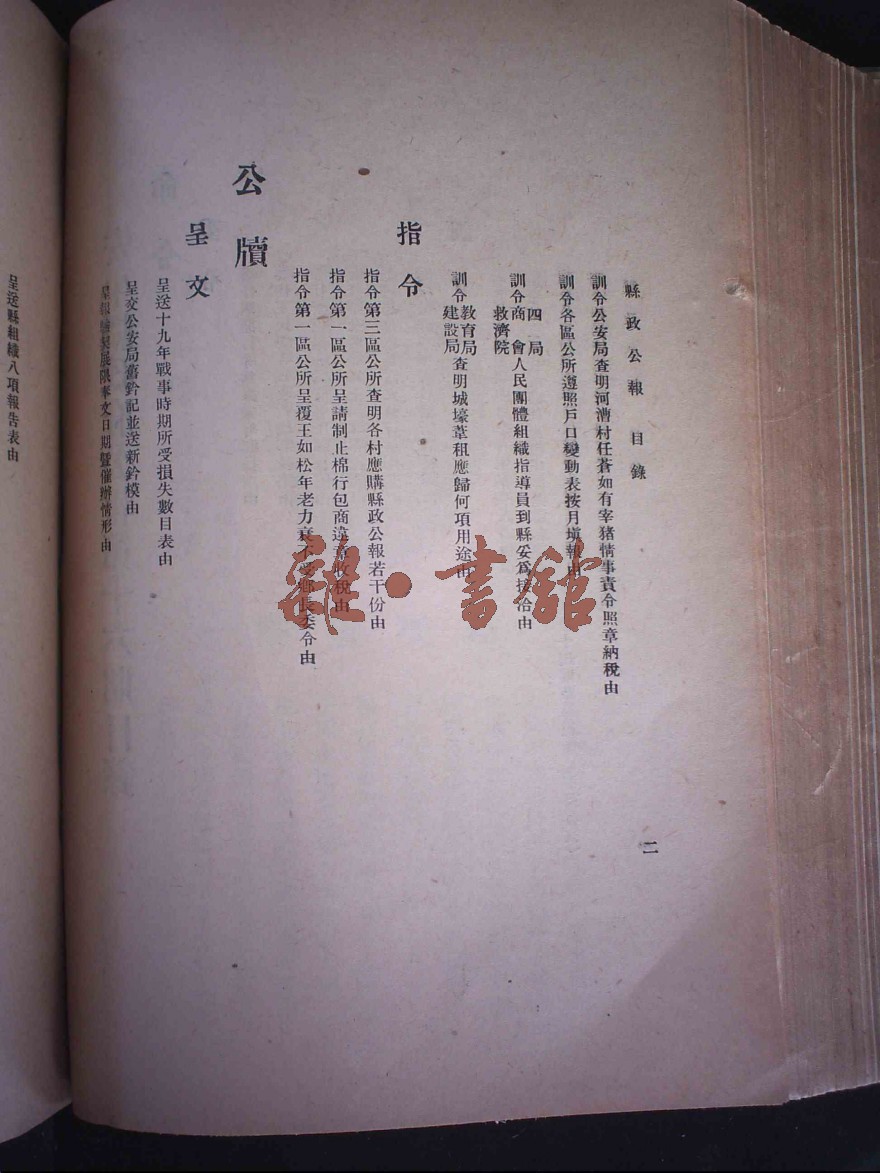 縣政公報 目錄
二
訓令公安局查明河漕村任蒼如有宰猪情事責令照章納稅由
訓令各區公所遵照戶口變動表按月塡報由
訓令四局商會救濟院人民團體組織指導員到縣妥爲接洽由
訓令教育局建設局查明城壕葦租應歸何項用途由
指令
指令第三區公所查明各村應購縣政公報若干份由
指令第一區公所呈請制止棉行包商違章收稅由
指令第一區公所呈覆王如松年老力衰不受鄉長委令由
公牘
呈文
呈送十九年戰事時期所受損失數目表由
呈交公安局舊鈐記並送新鈐模由
呈報驗契展限奉文日期暨催辦情形由
呈送縣組織八項報告表由
雜·書舘